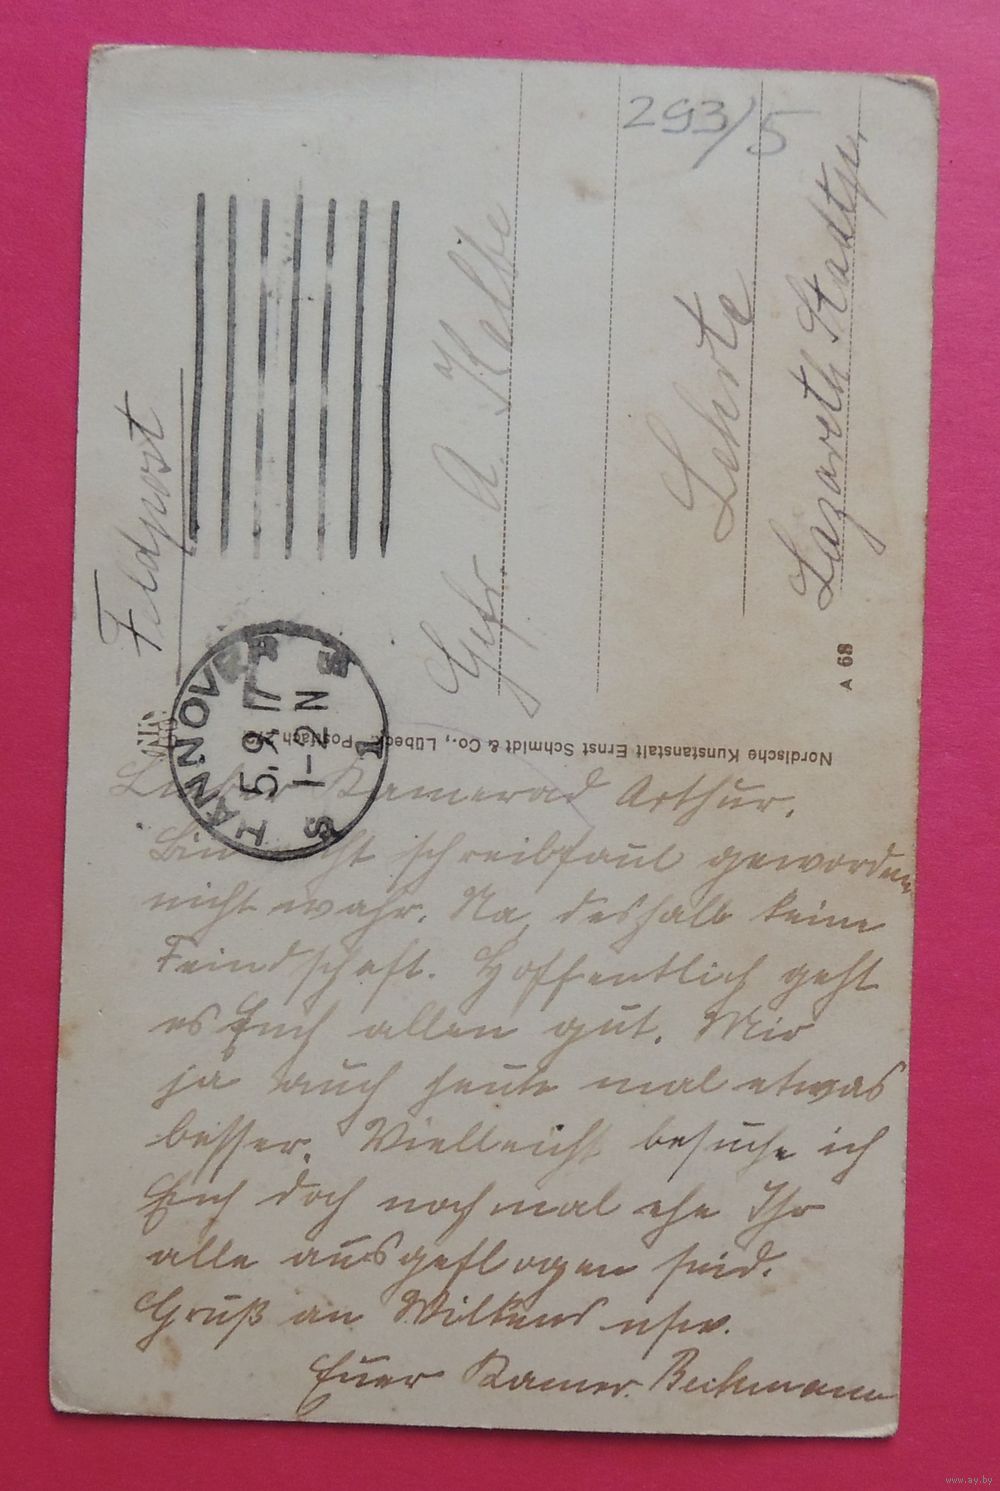 293/5
Feldpost
HANNOVER
5.9.17
1-2N
S 1 S
Gefr. A. Kelbe
Lehrte
Lazareth Stadtp.
A 68
Nordische Kunstanstalt Ernst Schmidt & Co., Lübeck, Postfach
Lieber Kamerad Arthur,
Bin recht schreibfaul geworden
nicht wahr. Na, deshalb keine
Feindschaft. Hoffentlich geht
es Euch allen gut. Mir
ja auch heute mal etwas
besser. Vielleicht besuche ich
Euch doch noch mal ehe Ihr
alle ausgeflogen seid.
Gruß an Wilkens usw.
Euer Kamer. Beckmann
www.ay.by